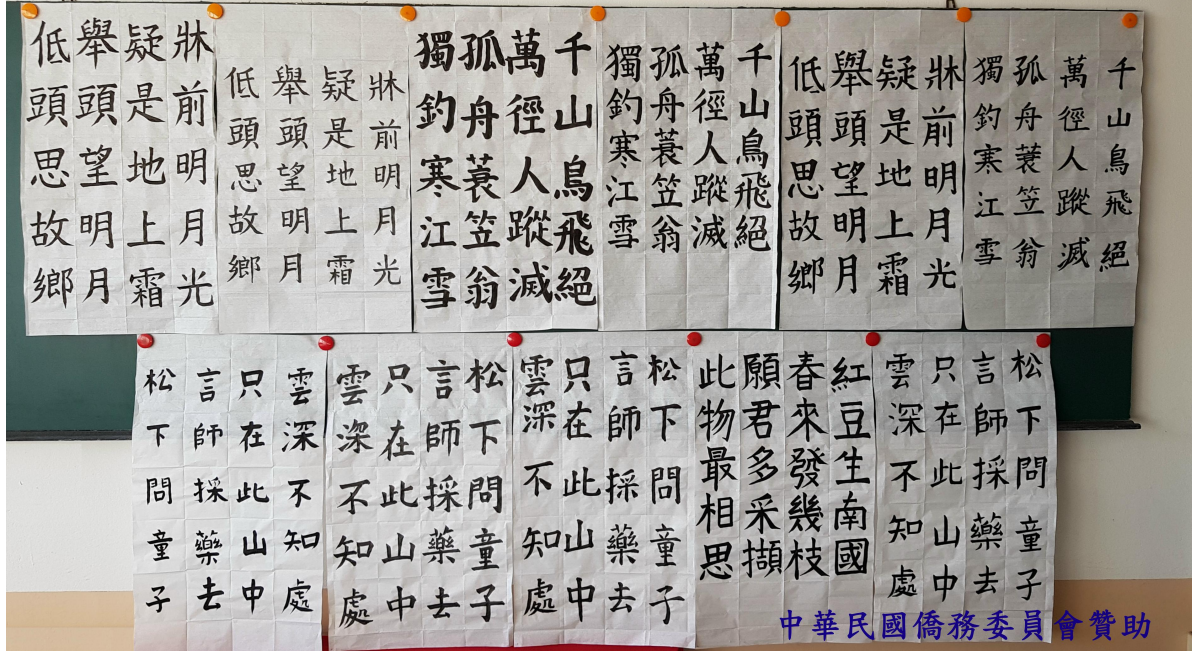 牀前明月光
疑是地上霜
舉頭望明月
低頭思故鄉
牀前明月光
疑是地上霜
舉頭望明月
低頭思故鄉
千山鳥飛絕
萬徑人蹤滅
孤舟蓑笠翁
獨釣寒江雪
千山鳥飛絕
萬徑人蹤滅
孤舟蓑笠翁
獨釣寒江雪
牀前明月光
疑是地上霜
舉頭望明月
低頭思故鄉
千山鳥飛絕
萬徑人蹤滅
孤舟蓑笠翁
獨釣寒江雪
松下問童子
言師採藥去
只在此山中
雲深不知處
松下問童子
言師採藥去
只在此山中
雲深不知處
松下問童子
言師採藥去
只在此山中
雲深不知處
紅豆生南國
春來發幾枝
願君多采擷
此物最相思
松下問童子
言師採藥去
只在此山中
雲深不知處
中華民國僑務委員會贊助